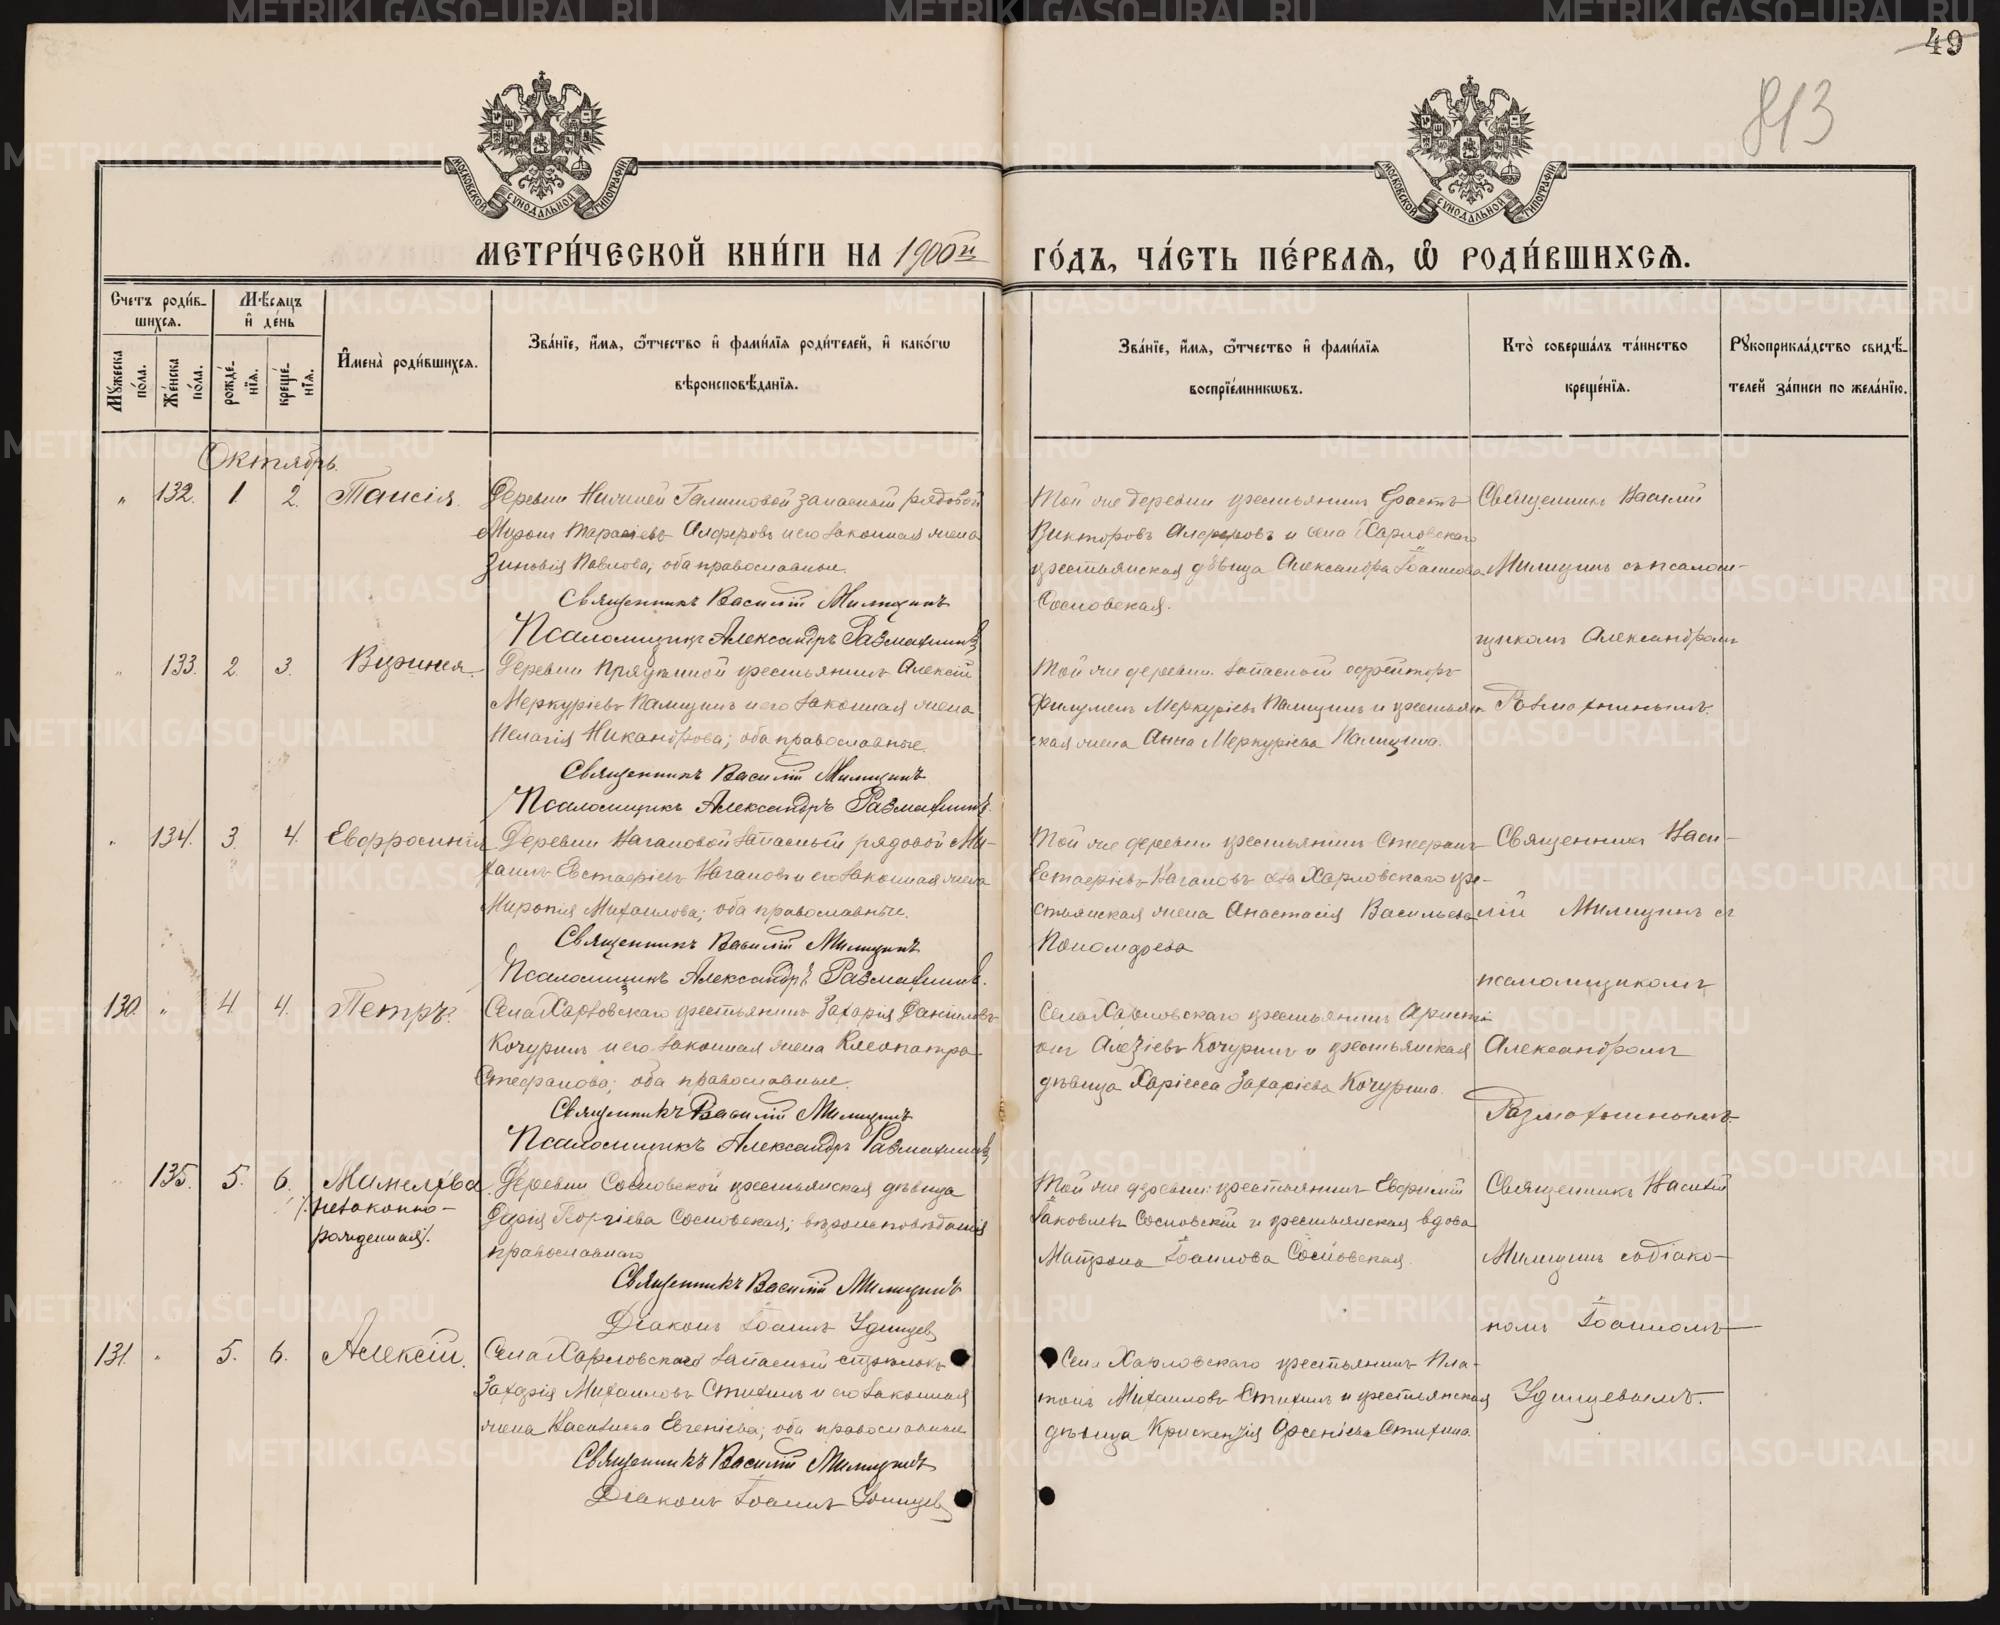 49
813
МОСКОВСКОЙ СУНОДАЛЬНОЙ ТИПОГРАФІИ
МОСКОВСКОЙ СУНОДАЛЬНОЙ ТИПОГРАФІИ
МЕТРИ́ЧЕСКОЙ КНИ́ГИ НА 1900й ГО́ДЪ, ЧА́СТЬ ПЕ́РВАѦ, Ѡ҆ РОДИ́ВШИХСѦ.
Счетъ роди́в-
шихсѧ.
Мꙋ́жеска по́ла.
Же́нска по́ла.
Мѣ́сѧцъ
и҆ де́нь
рожде́-
нїѧ.
креще́-
нїѧ.
И҆мена̀ роди́вшихсѧ.
Зва́нїе, и҆́мѧ, ѻ҆́тчество и҆ фами́лїѧ роди́телей, и҆ како́гѡ
вѣроисповѣ́данїѧ.
Зва́нїе, и҆́мѧ, ѻ҆́тчество и҆ фами́лїѧ
воспрїе́мникѡвъ.
Кто̀ соверша́лъ та́инство
креще́нїѧ.
Рꙋкоприкла́дство свидѣ́-
телей за́писи по жела́нїю.
Октябрь.
" 132. 1 2. Таисія.
Деревни Нижней Галишовой запасный рядовой
Миронъ Тарасіевъ Алферовъ и его законная жена
Зиновія Павлова, оба православные.
Священникъ Василій Милицинъ
Псаломщикъ Александръ Размахнинъ
Той же деревни крестьянинъ Ерастъ
Викторовъ Алферовъ и села Харловскаго
крестьянская дѣвица Александра Іоаннова
Сосновская.
Священникъ Василій
Милицинъ съ псалом-
щикомъ Александромъ
Размахнинымъ.
" 133. 2. 3. Виринея.
Деревни крестьянинъ Алексій
Меркуріевъ и его законная жена
Пелагія Никандрова; оба православные.
Священникъ Василій Милицинъ
Псаломщикъ Александръ Размахнинъ.
Той же деревни запасный ефрейторъ
Филуменъ Меркуріевъ и крестьян
ская жена Анна Меркуріева
" 134. 3. 4. Евфросинія
Деревни Вагановой запасный рядовой Ми-
хаилъ Евстафіевъ Вагановъ и его законная жена
Миропія Михаилова; оба православные.
Священникъ Василій Милицинъ
Псаломщикъ Александръ Размахнинъ.
Той же деревни крестьянинъ Стефанъ
Естафіевъ Вагановъ села Харловскаго кре-
стьянская жена Анастасія Васильева
Пономарева
Священникъ Васи-
лій Милицинъ съ
псаломщикомъ
Александромъ
Размахнинымъ.
130. " 4 4. Петръ.
Села Харловскаго крестьянинъ Захарія Даніиловъ
Кочуринъ и его законная жена Клеопатра
Стефанова; оба православные.
Священникъ Василій Милицинъ
Псаломщикъ Александръ Размахнинъ
Села Харловскаго крестьянинъ
Кочуринъ и крестьянская
дѣвица Захаріева Кочурина.
" 135. 5. 6. Минодора
/незаконно-
рожденная/.
Деревни Сосновской крестьянская дѣвица
Дарія Георгіева Сосновская; вѣроисповѣданія
православнаго
Священникъ Василій Милицинъ
Діаконъ Іоаннъ Удинцевъ
Той же деревни крестьянинъ Евфимій
Іаковлевъ Сосновскій и крестьянская вдова
Матрона Іоаннова Сосновская.
Священникъ Василій
Милицинъ съ діако-
номъ Іоанномъ
Удинцевымъ.
131. " 5. 6. Алексій.
Села Харловскаго запасный стрѣлокъ
Захарія Михаиловъ Стихинъ и его законная
жена Васильева Евгеніева; оба православные
Священникъ Василій Милицинъ
Діаконъ Іоаннъ Удинцевъ
Села Харловскаго крестьянинъ Пла-
тонъ Михаиловъ Стихинъ и крестьянская
дѣвица Крискентія Арсеніева Стихина.
METRIKI.GASO-URAL.RU